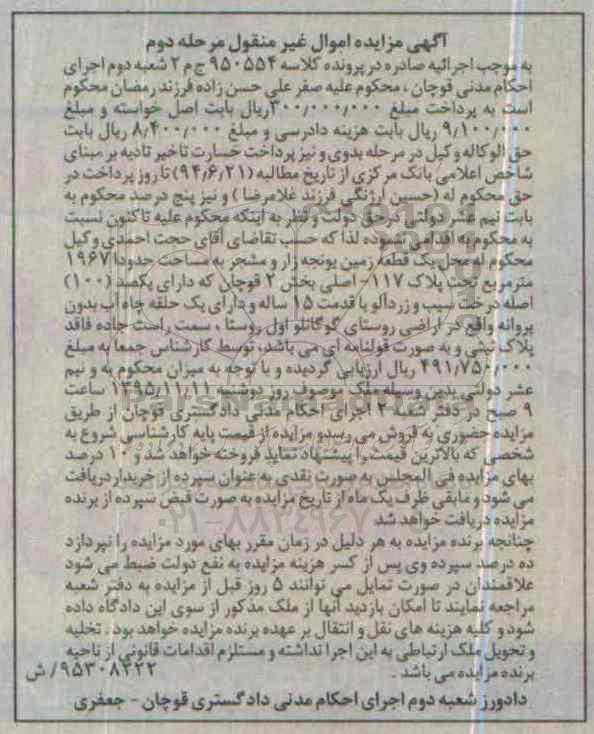 آگهی مزایده اموال غیر منقول مرحله دوم
به موجب اجرائیه صادره در پرونده کلاسه ۹۵۰۵۵۴ ج م ۲ شعبه دوم اجرای
احکام مدنی قوچان ، محکوم علیه صفر علی حسن زاده فرزند رمضان محکوم
است به پرداخت مبلغ ۳۰۰/۰۰۰/۰۰۰ریال بابت اصل خواسته و مبلغ
۹/۱۰۰/۰۰۰ ریال بابت هزینه دادرسی و مبلغ ۸/۴۰۰/۰۰۰ ریال بابت
حق الوکاله وکیل در مرحله بدوی و نیز پرداخت خسارت تاخیر تادیه بر مبنای
شاخص اعلامی بانک مرکزی از تاریخ مطالبه (۹۴/۶/۲۱) تا روز پرداخت در
حق محکوم له (حسین ارژنگی فرزند غلامرضا ) و نیز پنج درصد محکوم به
بابت نیم عشر دولتی در حق دولت و نظر به اینکه محکوم علیه تاکنون نسبت
به محکوم به اقدامی ننموده لذا که حسب تقاضای آقای حجت احمدی وکیل
محکوم له محل یک قطعه زمین یونجه زار و مشجر به مساحت حدودا ۱۹۶۷
مترمربع تحت پلاک ۱۱۷- اصلی بخش ۲ قوچان که دارای یکصد (۱۰۰)
اصله درخت سیب و زردآلو با قدمت ۱۵ ساله و دارای یک حلقه چاه آب بدون
پروانه واقع در اراضی روستای گوگانلو اول روستا ، سمت راست جاده فاقد
پلاک ثبتی و به صورت قولنامه ای می باشد، توسط کارشناس جمعا به مبلغ
۴۹۱/۷۵۰/۰۰۰ ریال ارزیابی گردیده و با توجه به میزان محکوم به و نیم
عشر دولتی بدین وسیله ملک موصوف روز دوشنبه ۱۳۹۵/۱۱/۱۱ ساعت
۹ صبح در دفتر شعبه ۲ اجرای احکام مدنی دادگستری قوچان از طریق
مزایده حضوری به فروش می رسدو مزایده از قیمت پایه کارشناسی شروع به
شخصی که بالاترین قیمت را پیشنهاد نماید فروخته خواهد شد و ۱۰ درصد
بهای مزایده فی المجلس به صورت نقدی به عنوان سپرده از خریدار دریافت
می شود و مابقی ظرف یک ماه از تاریخ مزایده به صورت قبض سپرده از برنده
مزایده دریافت خواهد شد
چنانچه برنده مزایده به هر دلیل در زمان مقرر بهای مورد مزایده را نپردازد
ده درصد سپرده وی پس از کسر هزینه مزایده به نفع دولت ضبط می شود
علاقمندان در صورت تمایل می توانند ۵ روز قبل از مزایده به دفتر شعبه
مراجعه نمایند تا امکان بازدید آنها از ملک مذکور از سوی این دادگاه داده
شود و کلیه هزینه های نقل و انتقال بر عهده برنده مزایده خواهد بود . تخلیه
و تحویل ملک ارتباطی به این اجرا نداشته و مستلزم اقدامات قانونی از ناحیه
برنده مزایده می باشد . ۹۵۳۰۸۴۲۲/ ش
دادورز شعبه دوم اجرای احکام مدنی دادگستری قوچان - جعفری